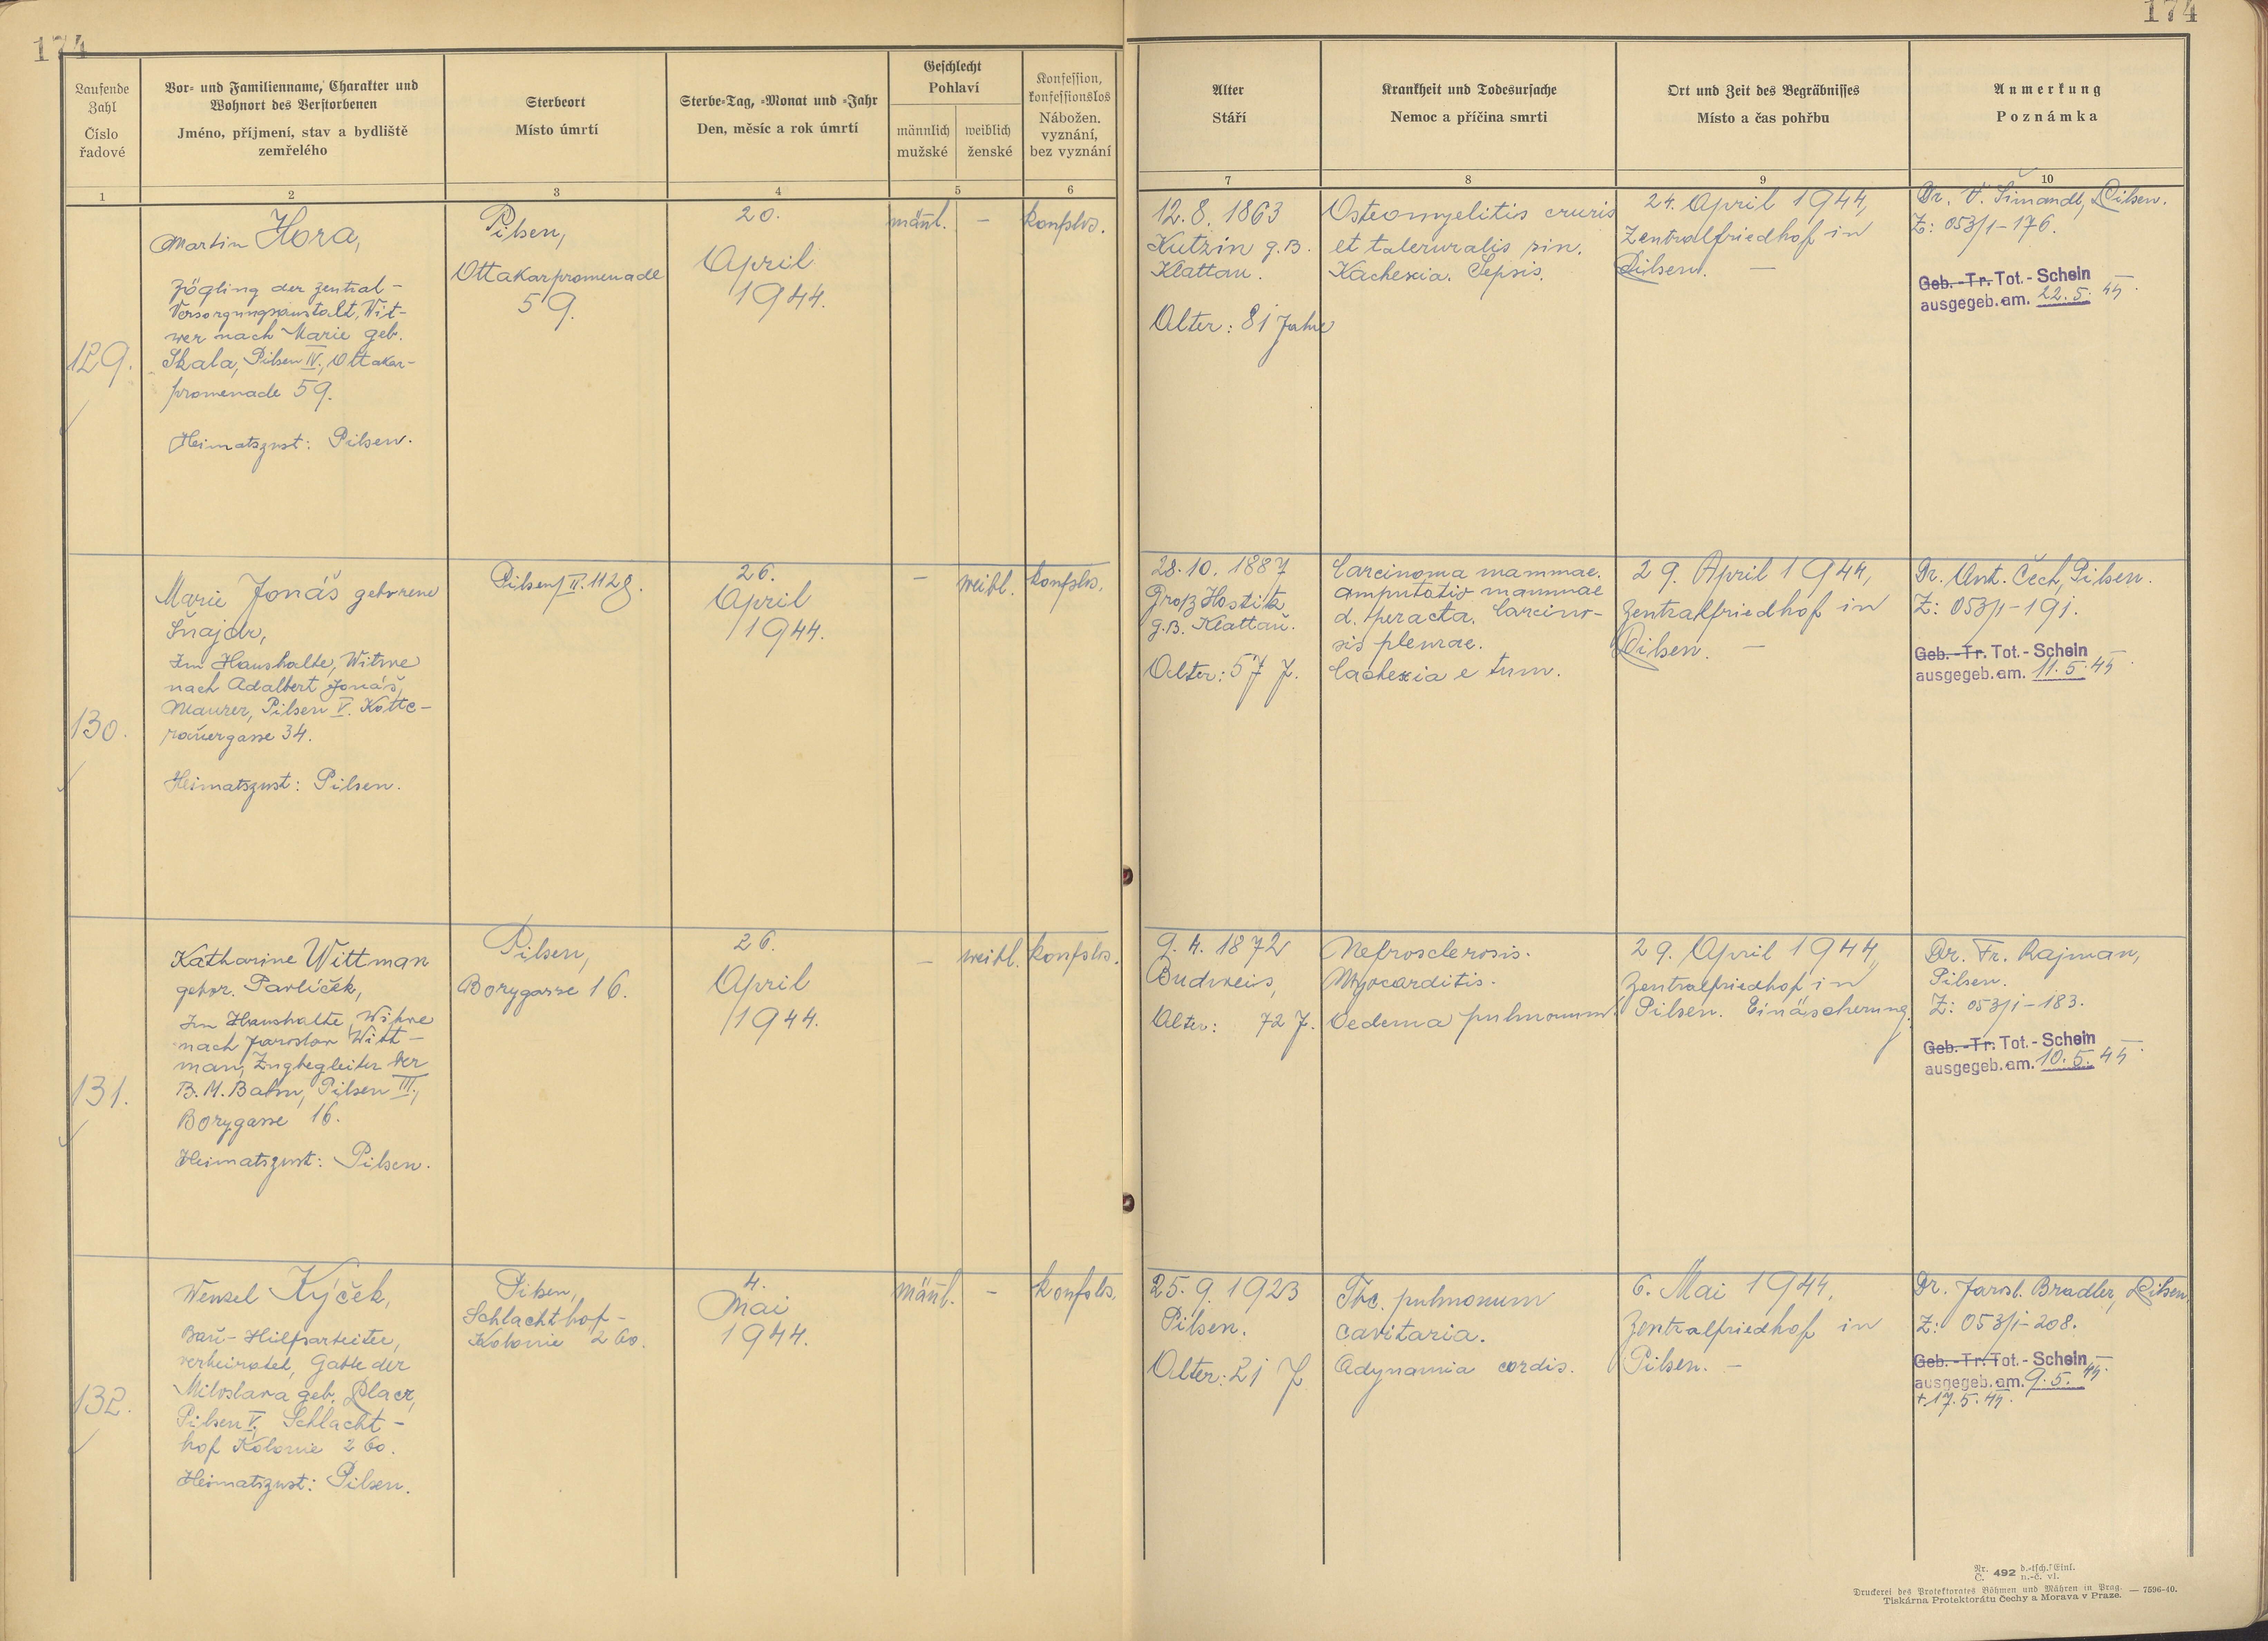 174
174
Laufende Zahl
Číslo řadové
Vor- und Familienname, Charakter und
Wohnort des Verstorbenen
Jméno, příjmení, stav a bydliště
zemřelého
Sterbeort
Místo úmrtí
Sterbe-Tag, -Monat und -Jahr
Den, měsíc a rok úmrtí
Geschlecht
Pohlaví
männlich
mužské
weiblich
ženské
Konfession,
konfessionslos
Nábožen.
vyznání,
bez vyznání
Alter
Stáří
Krankheit und Todesursache
Nemoc a příčina smrti
Ort und Zeit des Begräbnisses
Místo a čas pohřbu
Anmerkung
Poznámka
1
2
3
4
5
6
7
8
9
10
129.
Martin Hora,
Zögling der Zentral-
Versorgungsanstalt, Wit-
wer nach Marie geb.
Skala, Pilsen IV., Ottakar-
promenade 59.
Heimatszust: Pilsen.
Pilsen,
Ottakarpromenade
59.
20.
April
1944.
männl.
–
konfslos.
12.8. 1863
Kutzin g.B.
Klattau.
Alter: 81 Jahre
Osteomyelitis cruris
et
sin.
Kachexia. Sepsis.
24. April 1944,
Zentralfriedhof in
Pilsen. –
Dr. V. Šimandl, Pilsen.
Z: 053/1-176.
Geb.-Tr. Tot.-Schein
ausgegeb. am. 22.5. 44.
130.
Marie Jonáš geborene
Šnajdr,
Im Haushalte, Witwe
nach Adalbert Jonáš,
Maurer, Pilsen V. Kotte-
rauergasse 34.
Heimatszust: Pilsen.
Pilsen II. 1128.
26.
April
1944.
–
weibl.
konfslos.
28.10. 1887
Groß Hostitz
g.B. Klattau.
Alter: 57 J.
Carcinoma mammae.
amputatio mammae
d. peracta. Carcino-
sis pleurae.
Cachexia e tum.
29. April 1944,
Zentralfriedhof in
Pilsen. –
Dr. Ant. Čech, Pilsen.
Z: 053/1-191.
Geb.-Tr. Tot.-Schein
ausgegeb. am. 11.5. 44.
131.
Katharine Wittman
gebor. Pavlíček,
Im Haushalte, Witwe
nach Jaroslav Witt-
man, Zugbegleiter der
B.M.Bahn, Pilsen III.,
Borygasse 16.
Heimatszust: Pilsen.
Pilsen,
Borygasse 16.
26.
April
1944.
–
weibl.
konfslos.
9.4. 1872
Budweis,
Alter: 72 J.
Nefrosclerosis.
Myocarditis.
Oedema pulmonum.
29. April 1944,
Zentralfriedhof in
Pilsen. Einäscherung.
Dr. Fr. Rajman,
Pilsen.
Z: 053/1-183.
Geb.-Tr. Tot.-Schein
ausgegeb. am. 10.5. 44.
132.
Wenzel Kýček,
Bau-Hilfsarbeiter,
verheiratet, Gatte der
Miloslava geb. Placr,
Pilsen V., Schlacht-
hof Kolonie 260.
Heimatszust: Pilsen.
Pilsen,
Schlachthof-
Kolonie 260.
4.
Mai
1944.
männl.
–
konfslos.
25.9. 1923
Pilsen.
Alter: 21 J
Tbc. pulmonum
cavitaria.
Adynamia cordis.
6. Mai 1944,
Zentralfriedhof in
Pilsen. –
Dr. Jarosl. Bradler, Pilsen
Z: 053/1-208.
Geb.-Tr. Tot.-Schein
ausgegeb. am. 9.5. 44.
+ 17.5.44.
Nr. Č. 492 d.-tsch. Einl. n.-č. vl.
Druckerei des Protektorates Böhmen und Mähren in Prag. — 7596-40.
Tiskárna Protektorátu Čechy a Morava v Praze.